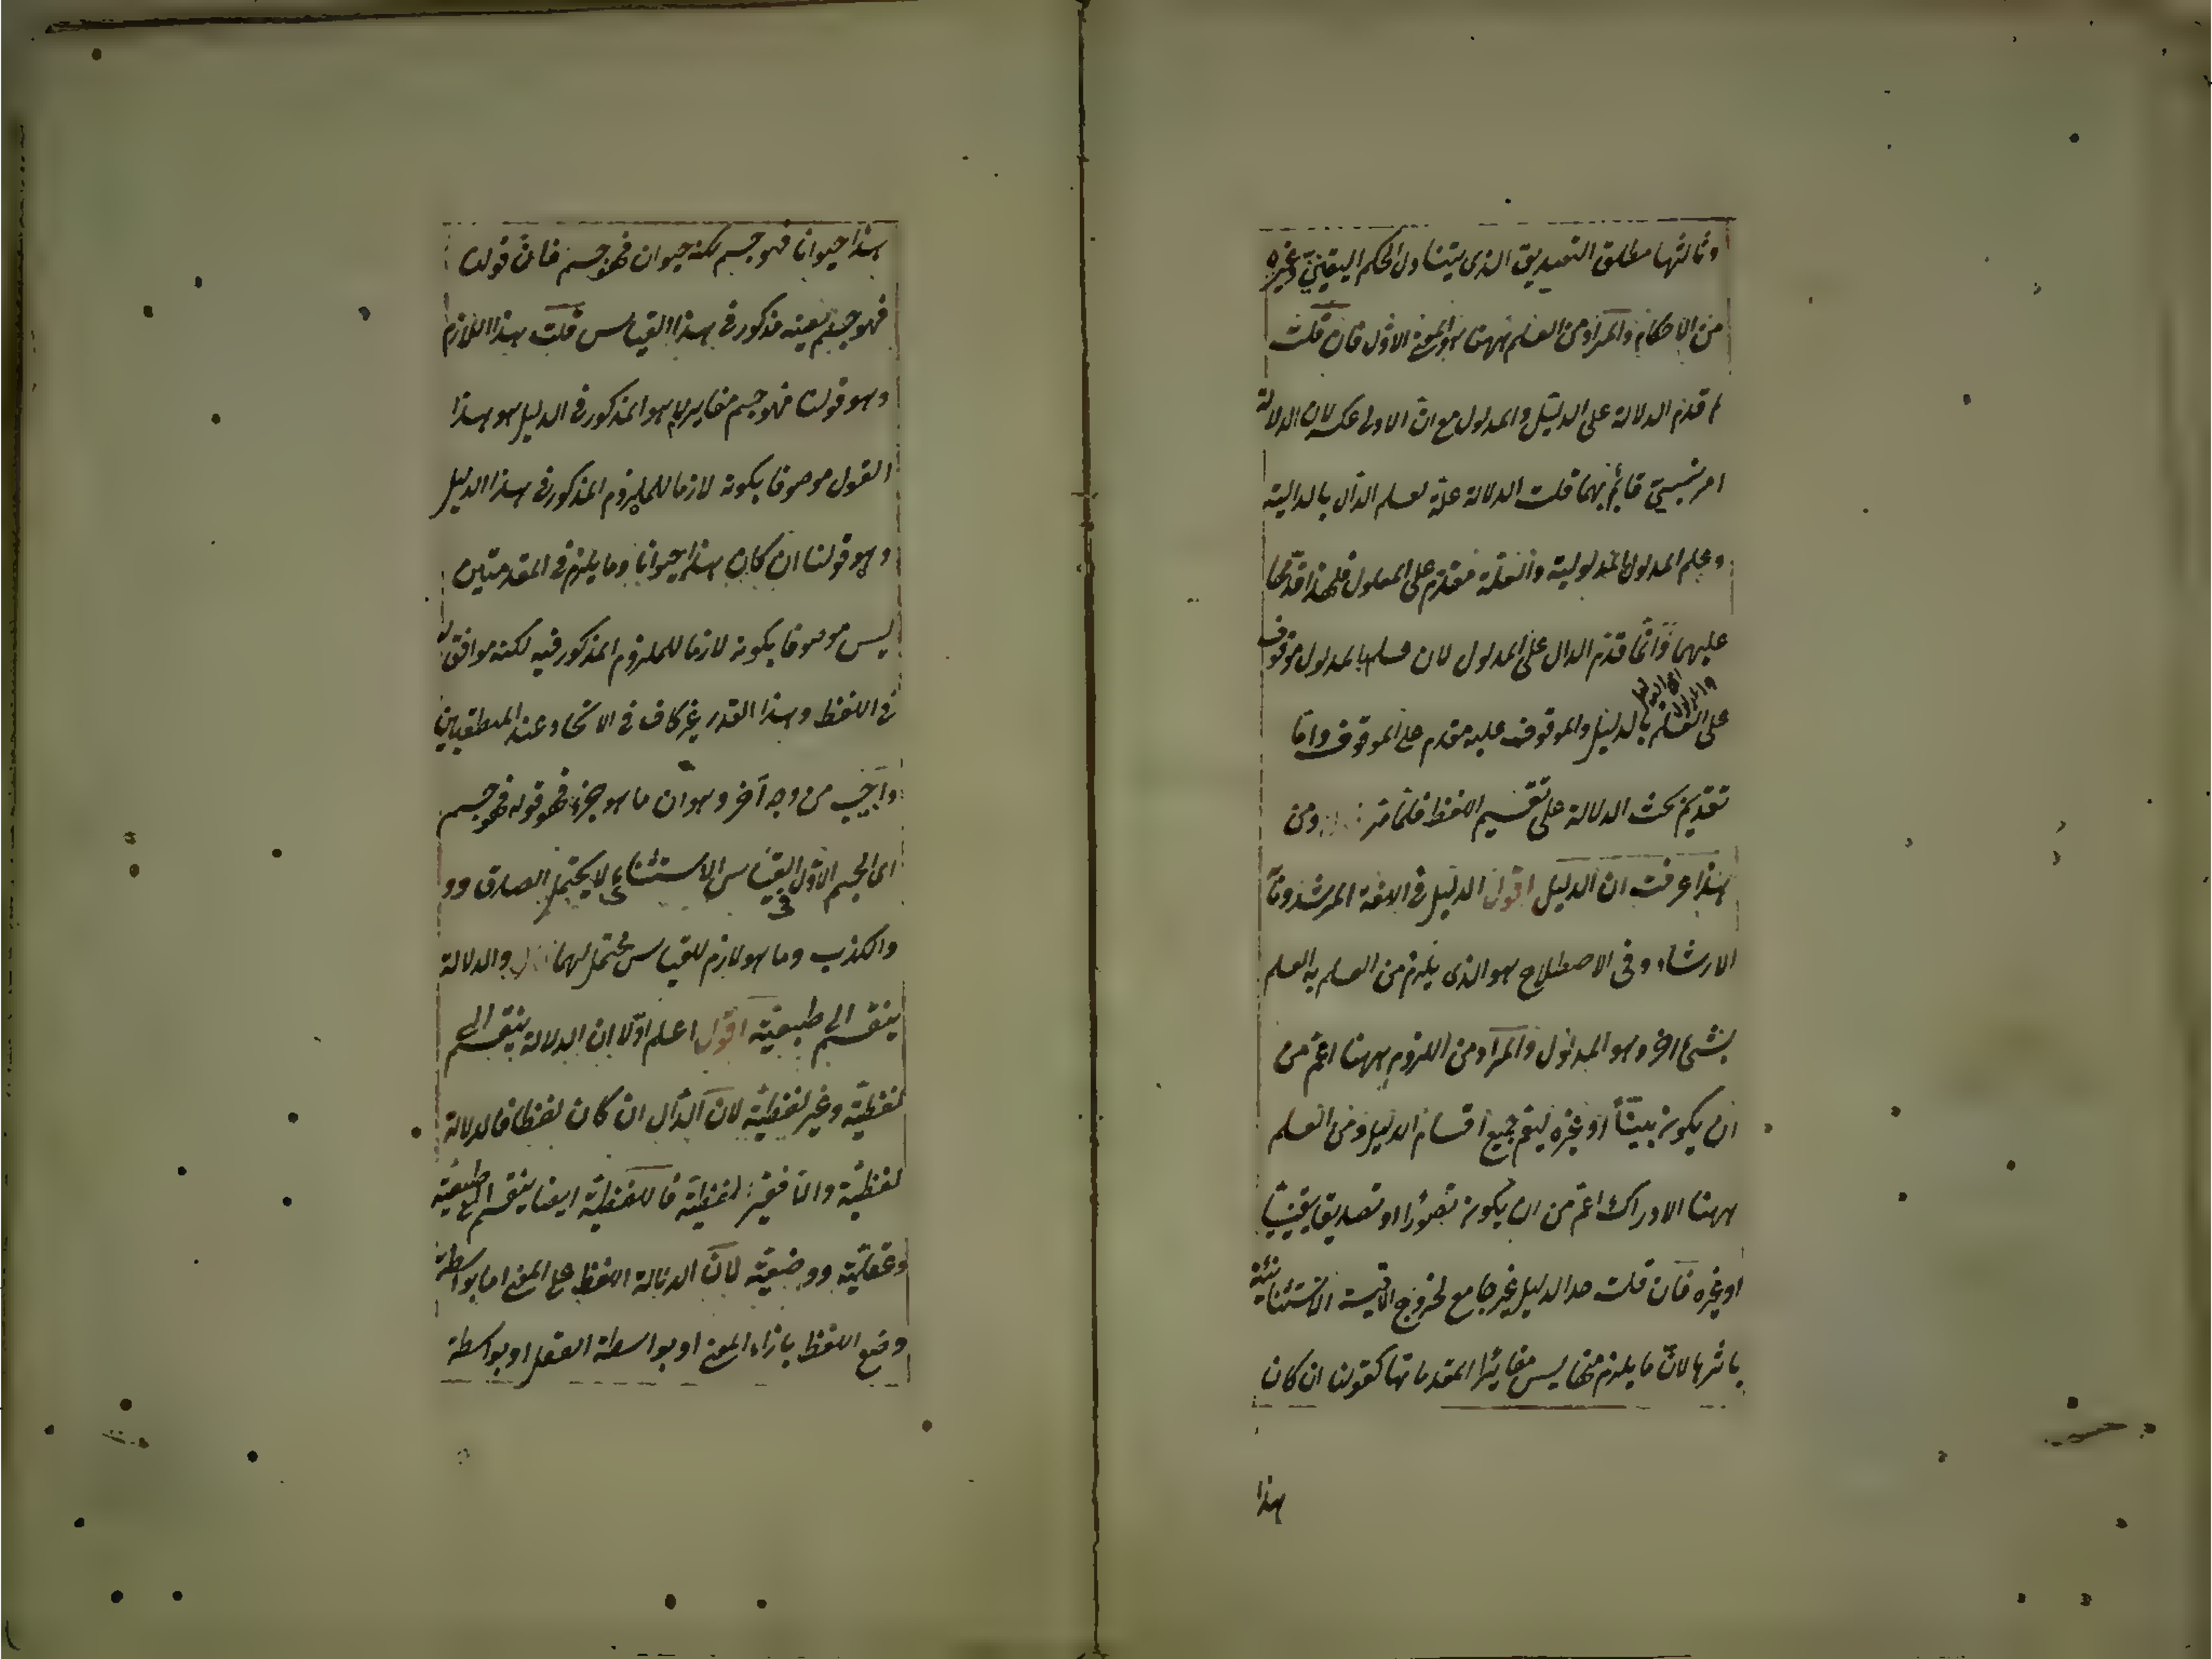 وثالثها مطلق التصديق الذى يتناول الحكم اليقينىّ وغيره
من الاحكام والمراد من العلم ههنا هو المعنى الاول فان قلت
لم قدم الدلالة على الدليل والمدلول مع ان الاولى عكسه لان الدلالة
امر نسبىّ قائم بهما قلت الدلالة علة لعلم الدال بالدالية
وعلم المدلول بالمدلولية والعلة مقدم على المعلول فلهذا قدمها
عليهما وانما قدم الدال على المدلول لان علم بالمدلول موقوف
على العلم بالدليل والموقوف عليه مقدم على الموقوف واما
تقديم بحث الدلالة على تقسيم اللفظ فلما مر ومن
هذا عرفت ان الدليل اقول الدليل فى اللغة المرشد وما به
الارشاد وفى الاصطلاح هو الذى يلزم من العلم به العلم
بشىء اخر وهو المدلول والمراد من اللزوم ههنا اعم من
ان يكون بينّاً او غيره ليعم جميع اقسام الدليل ومن العلم
ههنا الادراك اعم من ان يكون تصورا او تصديقا يقينيّا
او غيره فان قلت حد الدليل غير جامع لخروج الاقيسة الاستثنائية
باسرها لان ما يلزم منها ليس مغايرا لمقدماتها كقولنا ان كان
هذا
هذا حيوانا فهو جسم لكنه حيوان فهو جسم فان قولنا
فهو جسم بعينه مذكور فى هذا القياس قلت هذا اللازم
وهو قولنا فهو جسم مغاير لما هو المذكور فى الدليل هو هذا
القول موصوفا بكونه لازما للملزوم المذكور فى هذا الدليل
وهو قولنا ان كان هذا حيوانا وما يلزم فى المقدمتين
ليس موصوفا بكونه لازما للملزوم المذكور فيه لكنه موافق له
فى اللفظ وهذا القدر غير كاف فى الاتحاد عند المنطقيين
واجيب من وجه آخر وهو ان ما هو جزء فهو قوله فهو جسم
اى الجسم الاول القياس الاستثنائى لا يحتمل الصدق
والكذب وما هو لازم للقياس محتمل لهما والدلالة
ينقسم الى طبيعية اقول اعلم اولا ان الدلالة ينقسم الى
لفظية وغير لفظية لان الدال ان كان لفظا فالدلالة
لفظية والا فغير لفظية فاللفظية ايضا ينقسم الى طبيعية
وعقلية ووضعية لان الدلالة اللفظ على المعنى اما بواسطة
وضع اللفظ بازاء المعنى او بواسطة العقل او بواسطة